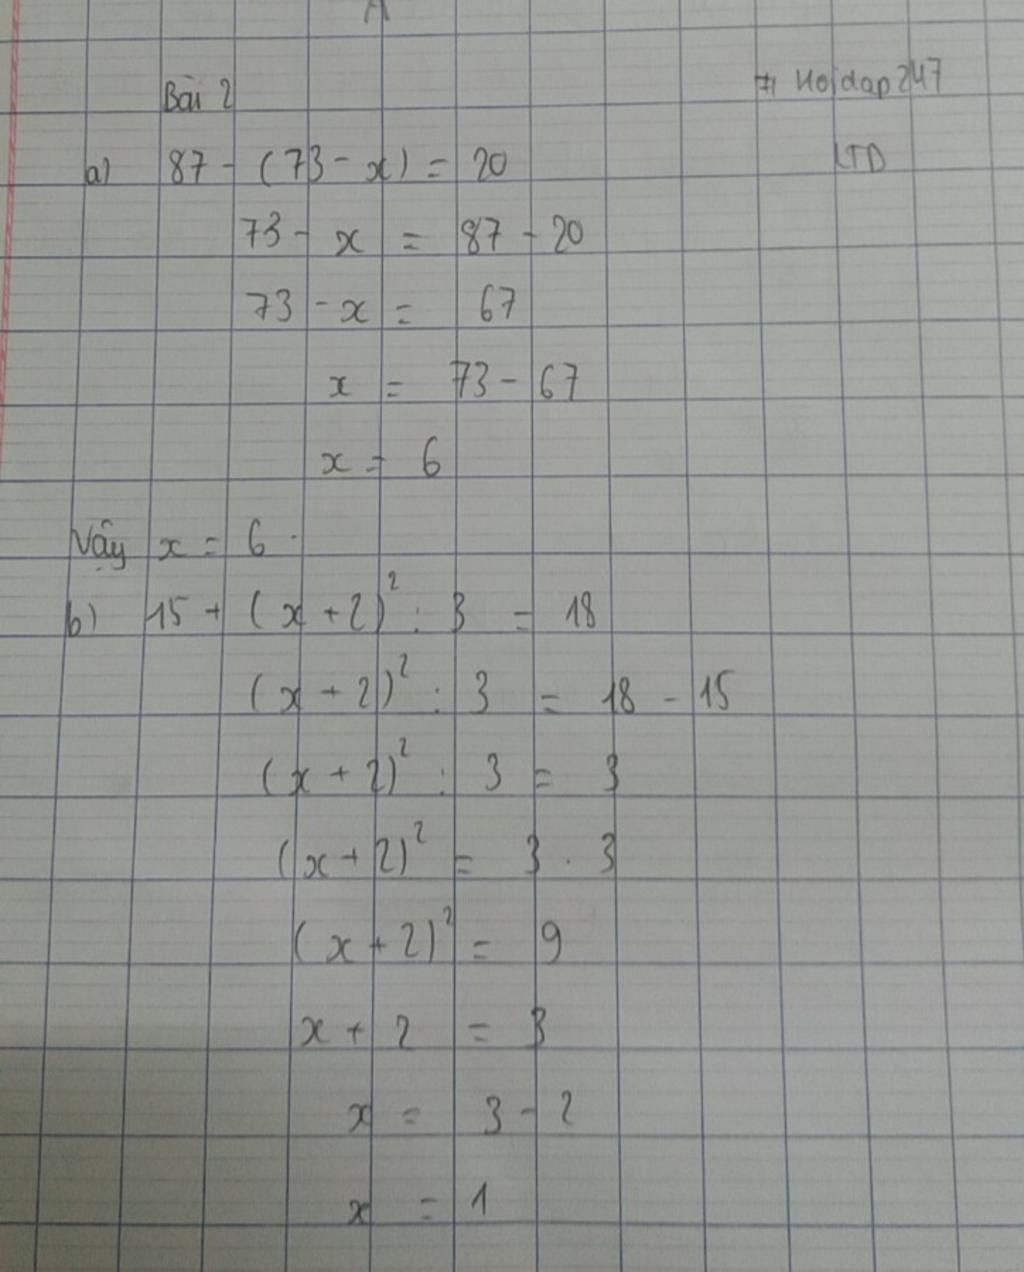 Bài 2
# Hoidap247
LTD
a) 87 - (73 - x) = 20
73 - x = 87 - 20
73 - x = 67
x = 73 - 67
x = 6
Vậy x = 6.
b) 15 + (x + 2)² : 3 = 18
(x + 2)² : 3 = 18 - 15
(x + 2)² : 3 = 3
(x + 2)² = 3 . 3
(x + 2)² = 9
x + 2 = 3
x = 3 - 2
x = 1